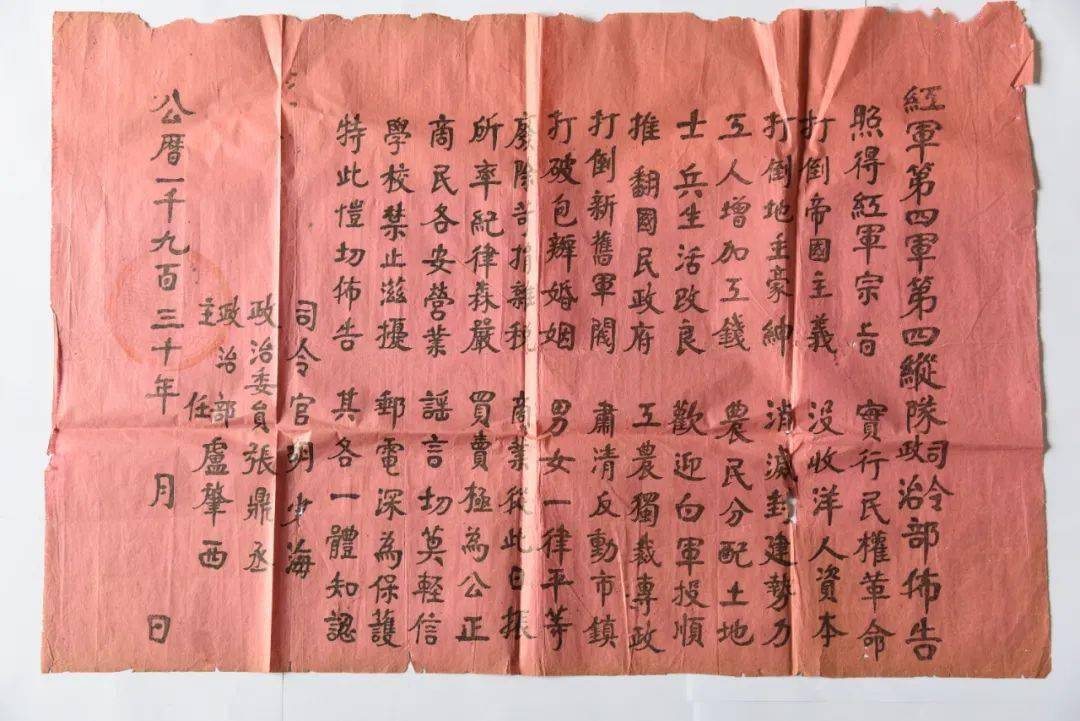 紅軍第四軍第四縱隊司令政治部佈告
照得紅軍宗旨 實行民權革命
打倒帝國主義 没收洋人資本
打倒地主豪紳 消滅封建勢力
工人增加工錢 農民分配土地
士兵生活改良 歡迎白軍投順
推翻國民政府 工農獨裁專政
打倒新舊軍閥 肅清反動市鎮
打破包辦婚姻 男女一律平等
廢除苛捐雜税 商業從此日振
所率紀律森嚴 買賣極為公正
商民各安營業 謡言切莫輕信
學校禁止滋擾 郵電深為保護
特此愷切佈告 其各一體知認
司令官胡少海
政治委員張鼎丞
政治部主任盧肇西
公暦一千九百三十年 月 日